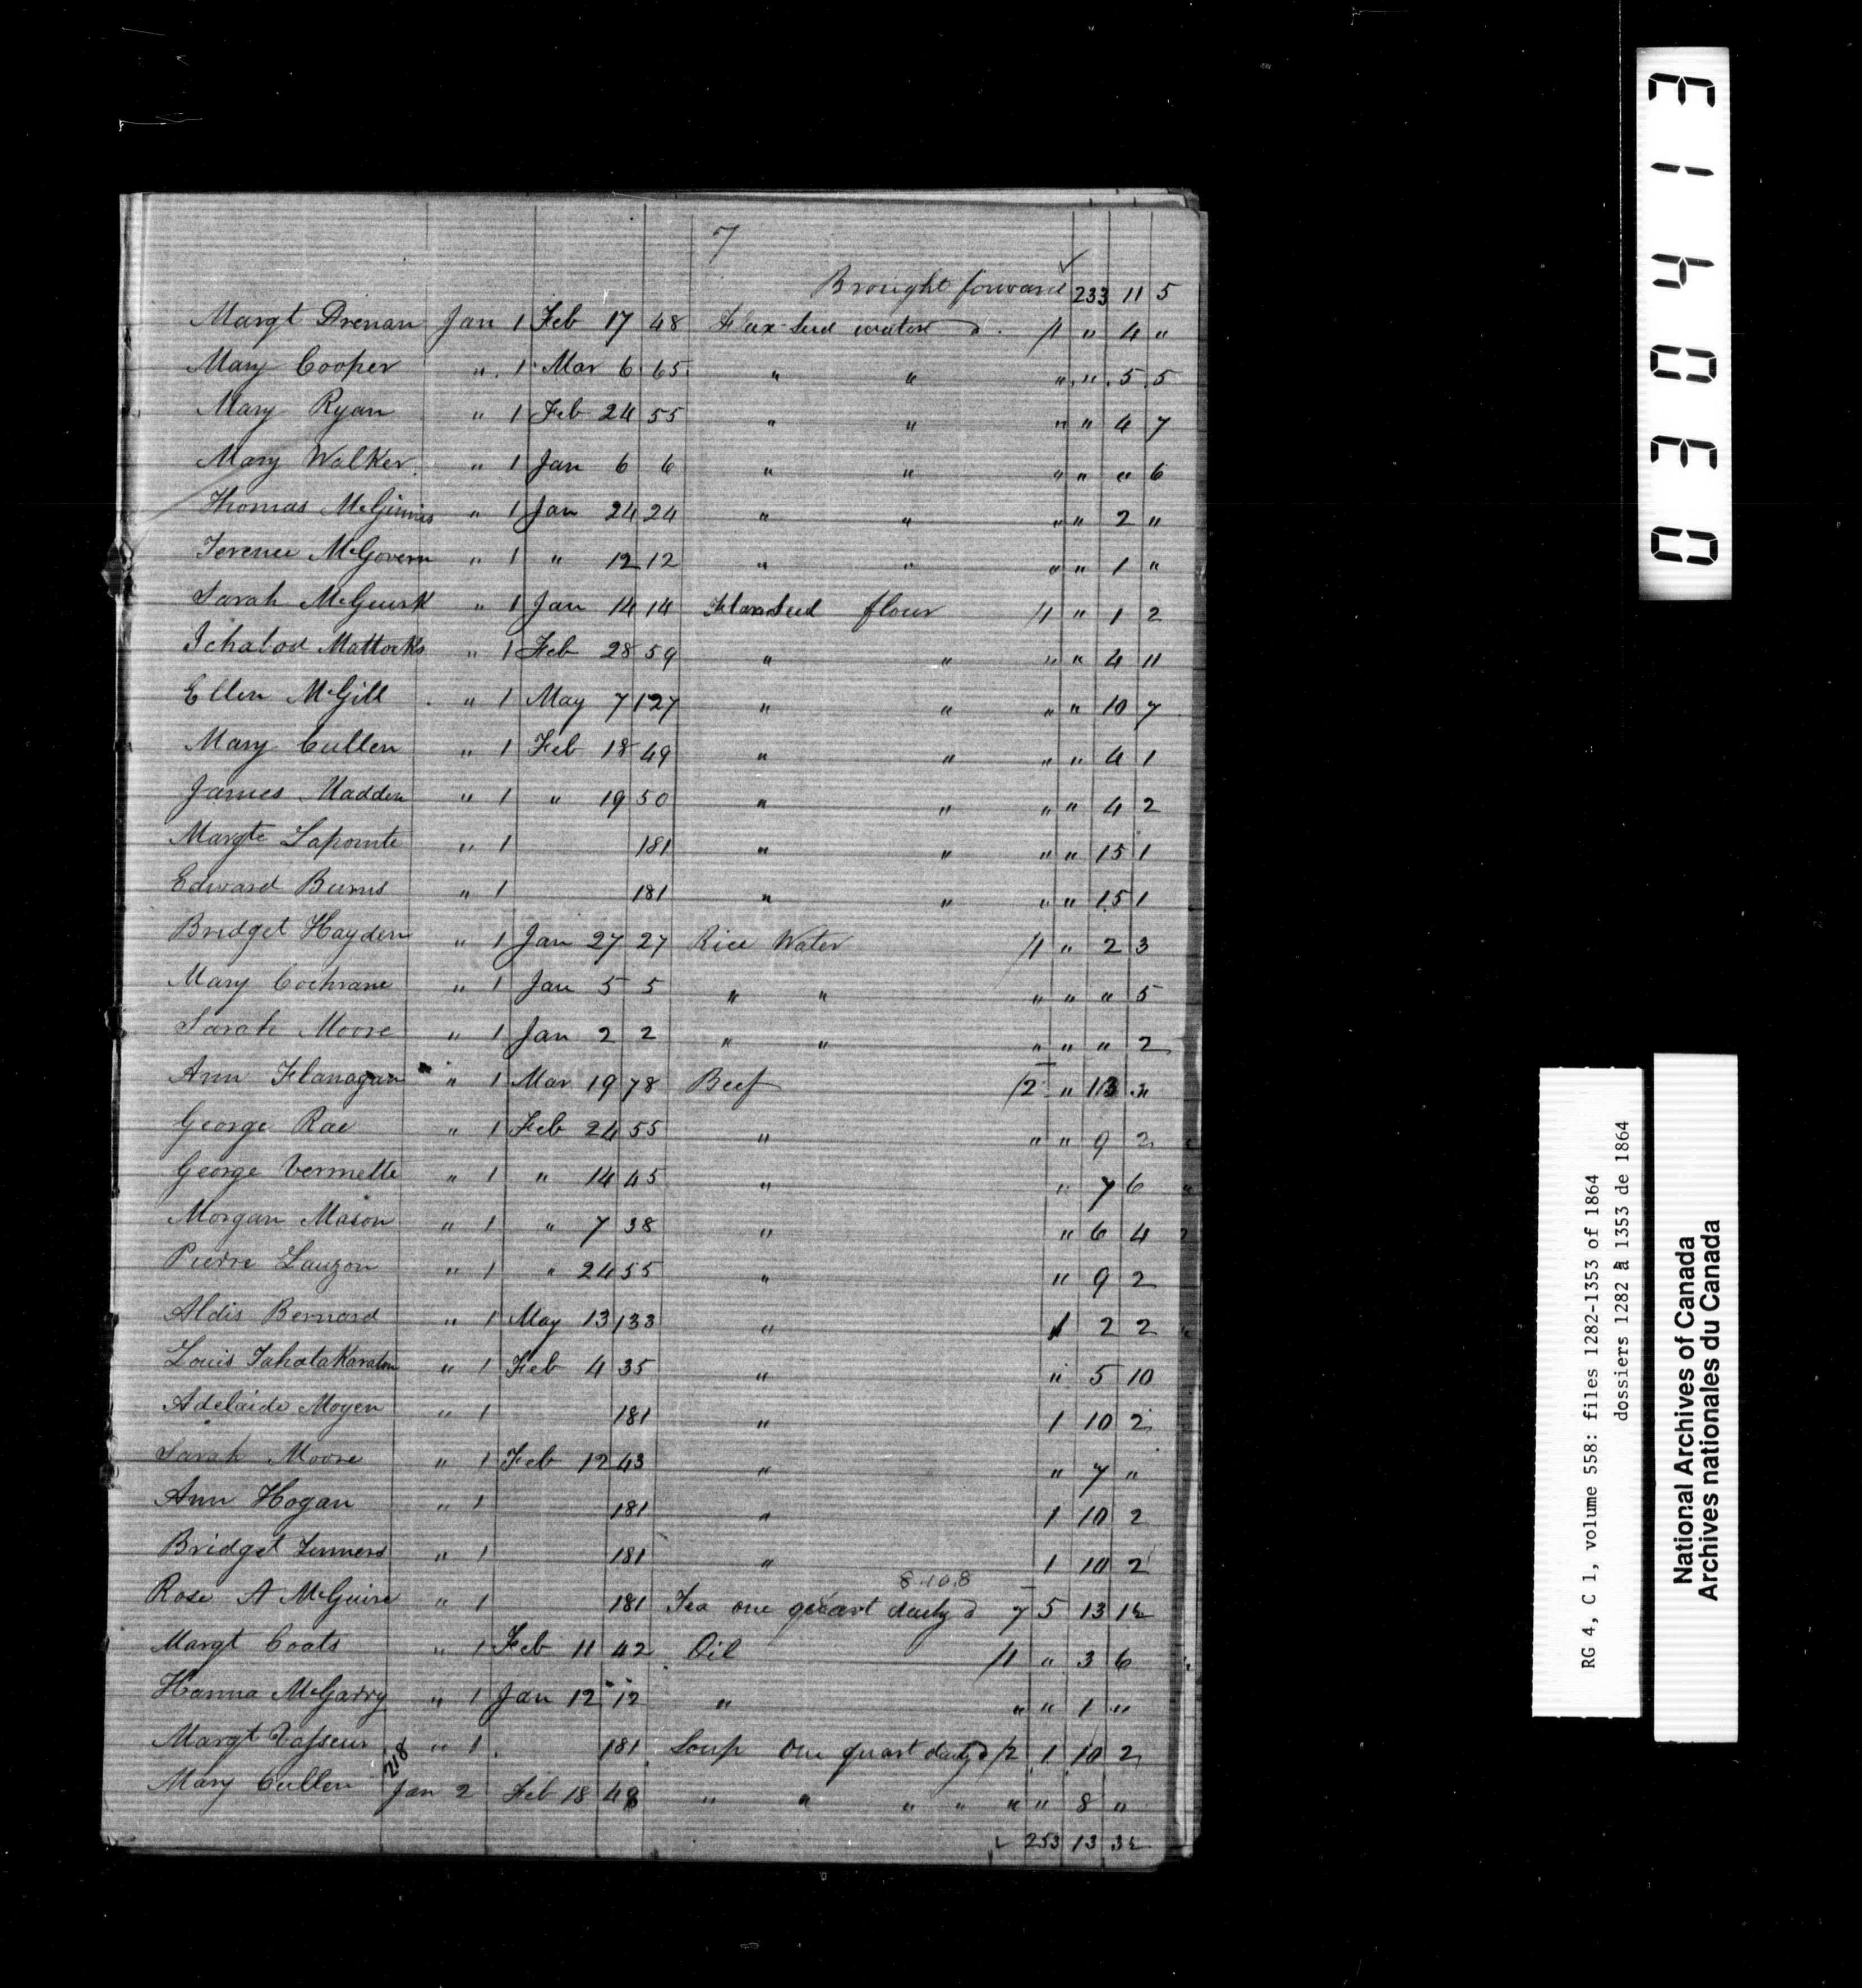 7
Brought forward 233 11 5
Margt Drenan Jan 1 Feb 17 48 Flax seed water d. /1 " 4 "
Mary Cooper " 1 Mar 6 65 " " " " 5 5
Mary Ryan " 1 Feb 24 55 " " " " 4 7
Mary Walker " 1 Jan 6 6 " " " " " 6
Thomas McGinnis " 1 Jan 24 24 " " " " 2 "
Terence McGovern " 1 " 12 12 " " " " 1 "
Sarah McGuirk " 1 Jan 14 14 Flaxseed flour /1 " 1 2
Ichabod Mattocks " 1 Feb 28 59 " " " " 4 11
Ellen McGill " 1 May 7 127 " " " " 10 7
Mary Cullen " 1 Feb 18 49 " " " " 4 1
James Madden " 1 " 19 50 " " " " 4 2
Margte Lapointe " 1 181 " " " " 15 1
Edward Burns " 1 181 " " " " 15 1
Bridget Hayden " 1 Jan 27 27 Rice Water /1 " 2 3
Mary Cochrane " 1 Jan 5 5 " " " " " 5
Sarah Moore " 1 Jan 2 2 " " " " " 2
Ann Flanagan " 1 Mar 19 78 Beef /2 " 13 "
George Rae " 1 Feb 24 55 " " " 9 2
George Vermette " 1 " 14 45 " " 7 6
Morgan Mason " 1 " 7 38 " " 6 4
Pierre Lauzon " 1 " 24 55 " " 9 2
Aldis Bernard " 1 May 13 133 " 1 2 2
Louis " 1 Feb 4 35 " " 5 10
Adelaide Moyen " 1 181 " 1 10 2
Sarah Moore " 1 Feb 12 43 " " 7 "
Ann Hogan " 1 181 " 1 10 2
Bridget " 1 181 " 1 10 2
8.10.8
Rose A McGuire " 1 181 Tea one quart daily d 7 5 13 1½
Margt Coats " 1 Feb 11 42 Oil /1 " 3 6
Hanna McGarry " 1 Jan 12 12 " " " 1 "
Margt Vasseur " 1 181 Soup One quart daily d /2 1 10 2
218
Mary Cullen Jan 2 Feb 18 48 " " " " " " 8 "
253 13 3½
030413
RG 4, C 1, volume 558: files 1282-1353 of 1864
dossiers 1282 à 1353 de 1864
National Archives of Canada
Archives nationales du Canada